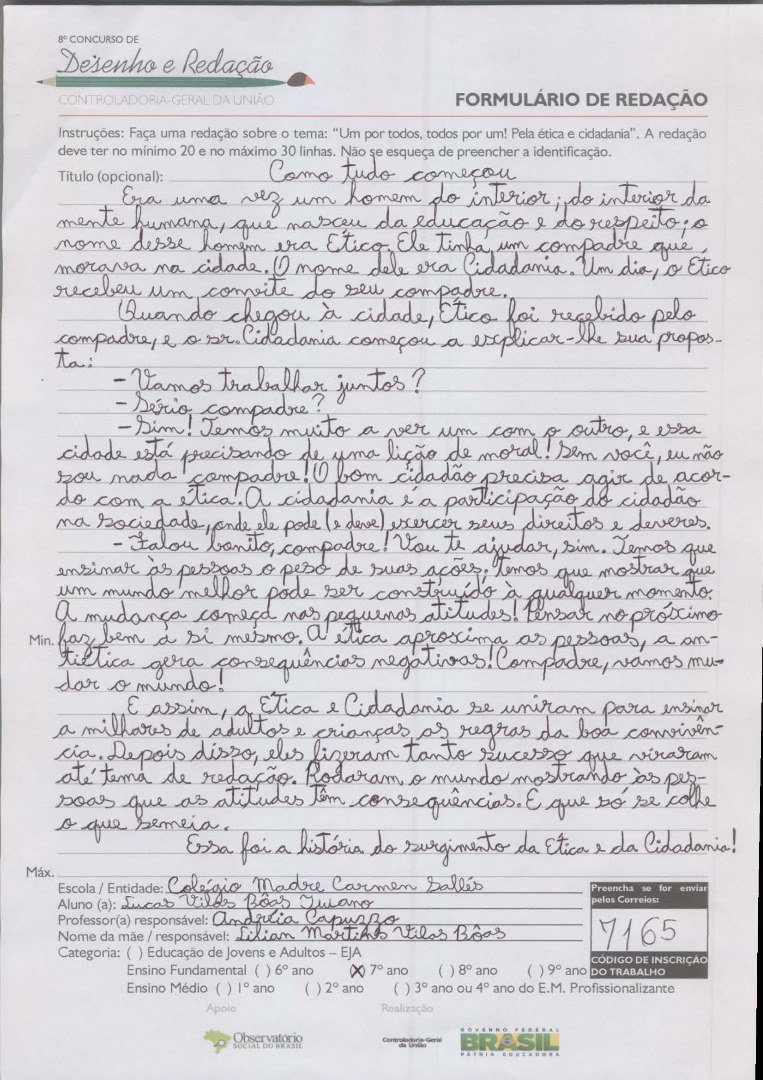 8º CONCURSO DE
Desenho e Redação
CONTROLADORIA-GERAL DA UNIÃO
FORMULÁRIO DE REDAÇÃO
Instruções: Faça uma redação sobre o tema: "Um por todos, todos por um! Pela ética e cidadania". A redação
deve ter no mínimo 20 e no máximo 30 linhas. Não se esqueça de preencher a identificação.
Título (opcional): Como tudo começou
Era uma vez um homem do interior; do interior da
mente humana, que nasceu da educação e do respeito; o
nome desse homem era Ético. Ele tinha um compadre que
morava na cidade. O nome dele era Cidadania. Um dia, o Ético
recebeu um convite do seu compadre.
Quando chegou à cidade, Ético foi recebido pelo
compadre, e o sr. Cidadania começou a esplicar-lhe sua propos-
ta:
- Vamos trabalhar juntos?
- Sério compadre?
- Sim! Temos muito a ver um com o outro, e essa
cidade está precisando de uma lição de moral! Sem você, eu não
sou nada compadre! O bom cidadão precisa agir de acor-
do com a ética! A cidadania é a participação do cidadão
na sociedade, onde ele pode (e deve) exercer seus direitos e deveres.
- Falou bonito, compadre! Vou te ajudar, sim. Temos que
ensinar às pessoas o peso de suas ações; temos que mostrar que
um mundo melhor pode ser construído à qualquer momento.
A mudança começa nas pequenas atitudes! Pensar no próximo
Min. faz bem a si mesmo. A ética aproxima as pessoas, a an-
tiética gera consequências negativas! Compadre, vamos mu-
dar o mundo!
E assim, a Ética e Cidadania se uniram para ensinar
a milhares de adultos e crianças as regras da boa convivên-
cia. Depois disso, eles fizeram tanto sucesso que viraram
até tema de redação. Rodaram o mundo mostrando às pes-
soas que as atitudes têm consequências. E que só se colhe
o que semeia.
Essa foi a história do surgimento da Ética e da Cidadania!
Máx.
Escola / Entidade: Colégio Madre Carmen Sallés
Aluno (a): Lucas Vilas Bôas
Professor(a) responsável: Andréia Capuzzo
Nome da mãe / responsável: Lilian Martins Vilas Bôas
Preencha se for enviar
pelos Correios:
7165
CÓDIGO DE INSCRIÇÃO
DO TRABALHO
Categoria: ( ) Educação de Jovens e Adultos – EJA
Ensino Fundamental ( ) 6º ano (X) 7º ano ( ) 8º ano ( ) 9º ano
Ensino Médio ( ) 1º ano ( ) 2º ano ( ) 3º ano ou 4º ano do E.M. Profissionalizante
Apoio
Realização
Observatório
SOCIAL DO BRASIL
Controladoria-Geral
da União
GOVERNO FEDERAL
BRASIL
PÁTRIA EDUCADORA